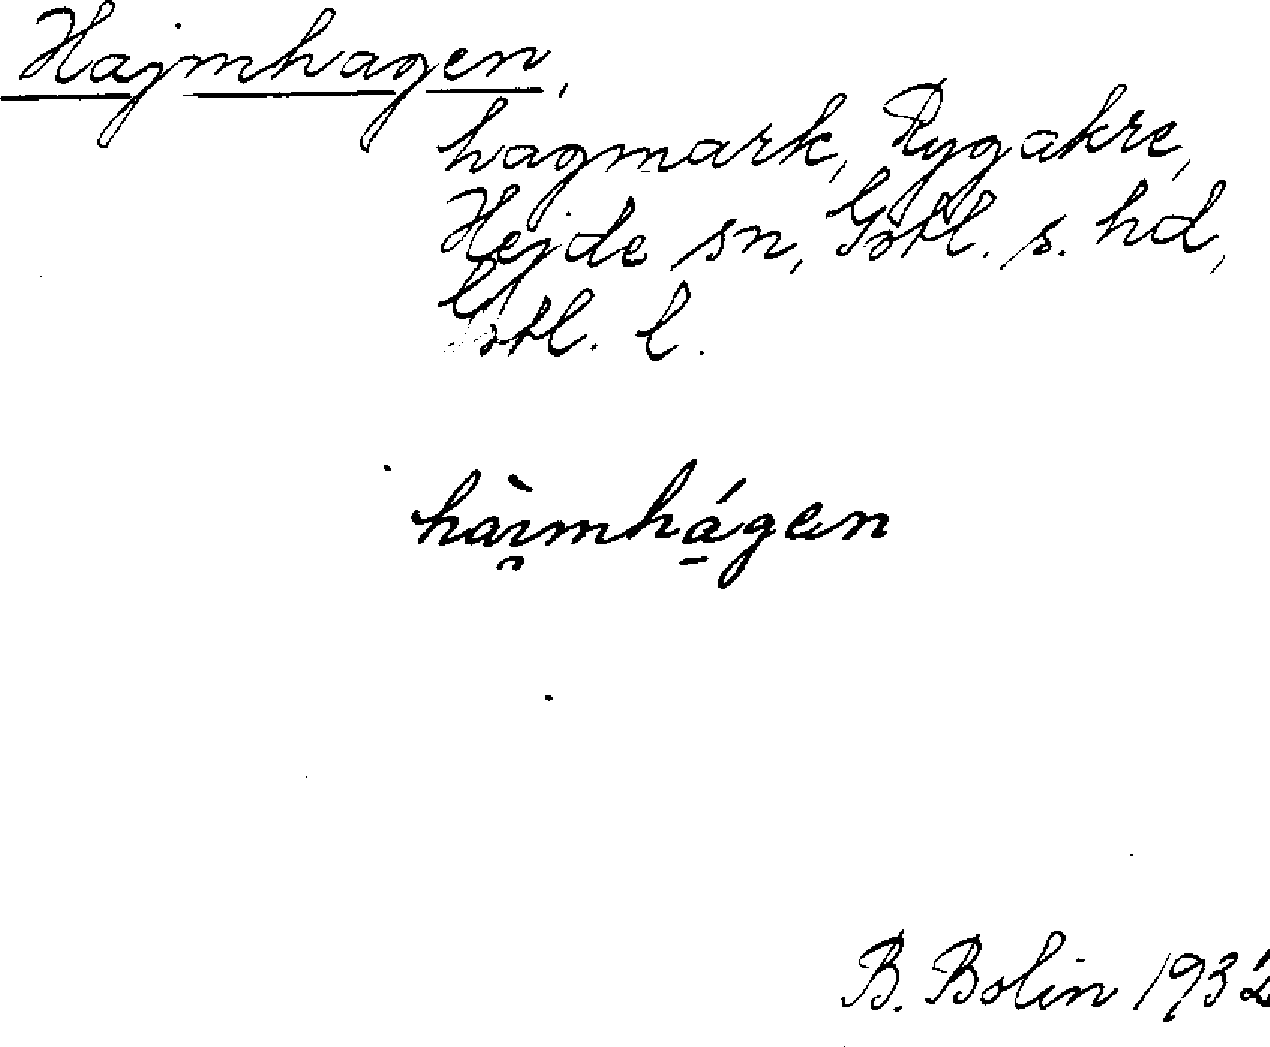 Hajmhagen,
hagmark, Rygakre,
Hejde sn, Gotl. s. hd,
Gotl. l.
hàı̯mhá̱gen
B. Bolin 1932